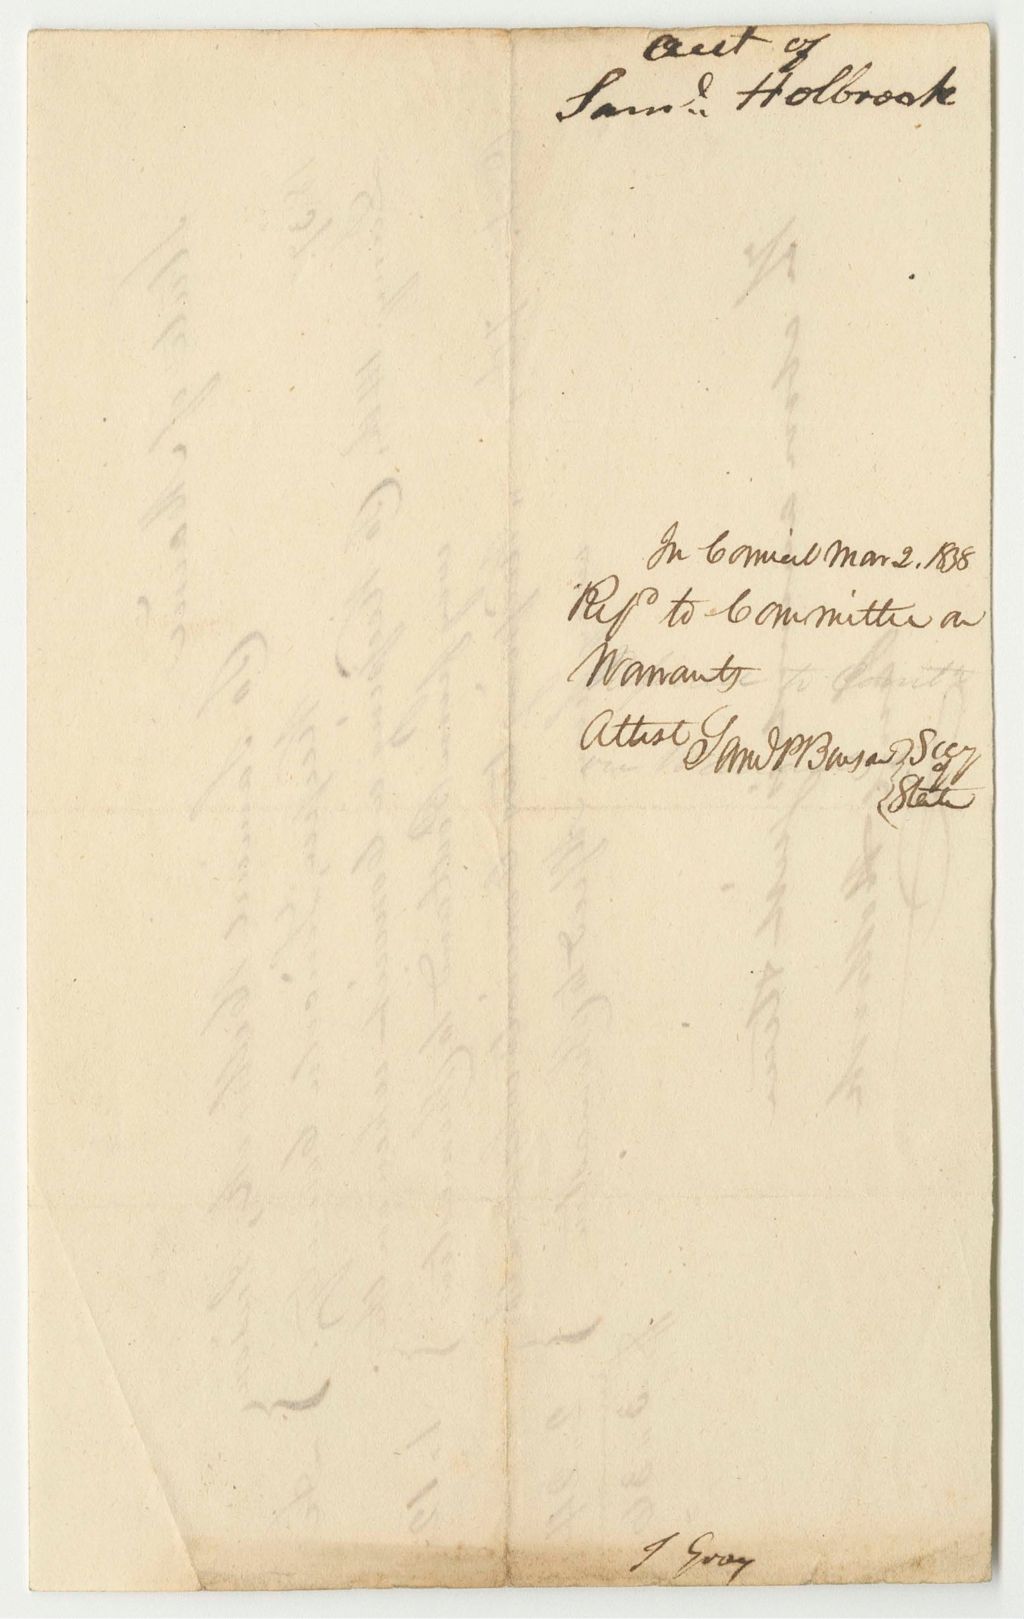 acct of
Saml. Holbrook
In Council Mar 2. 1838
Refd to Committee on
Warrants
Attest
Saml P Benson Secy
of
State
J Gray